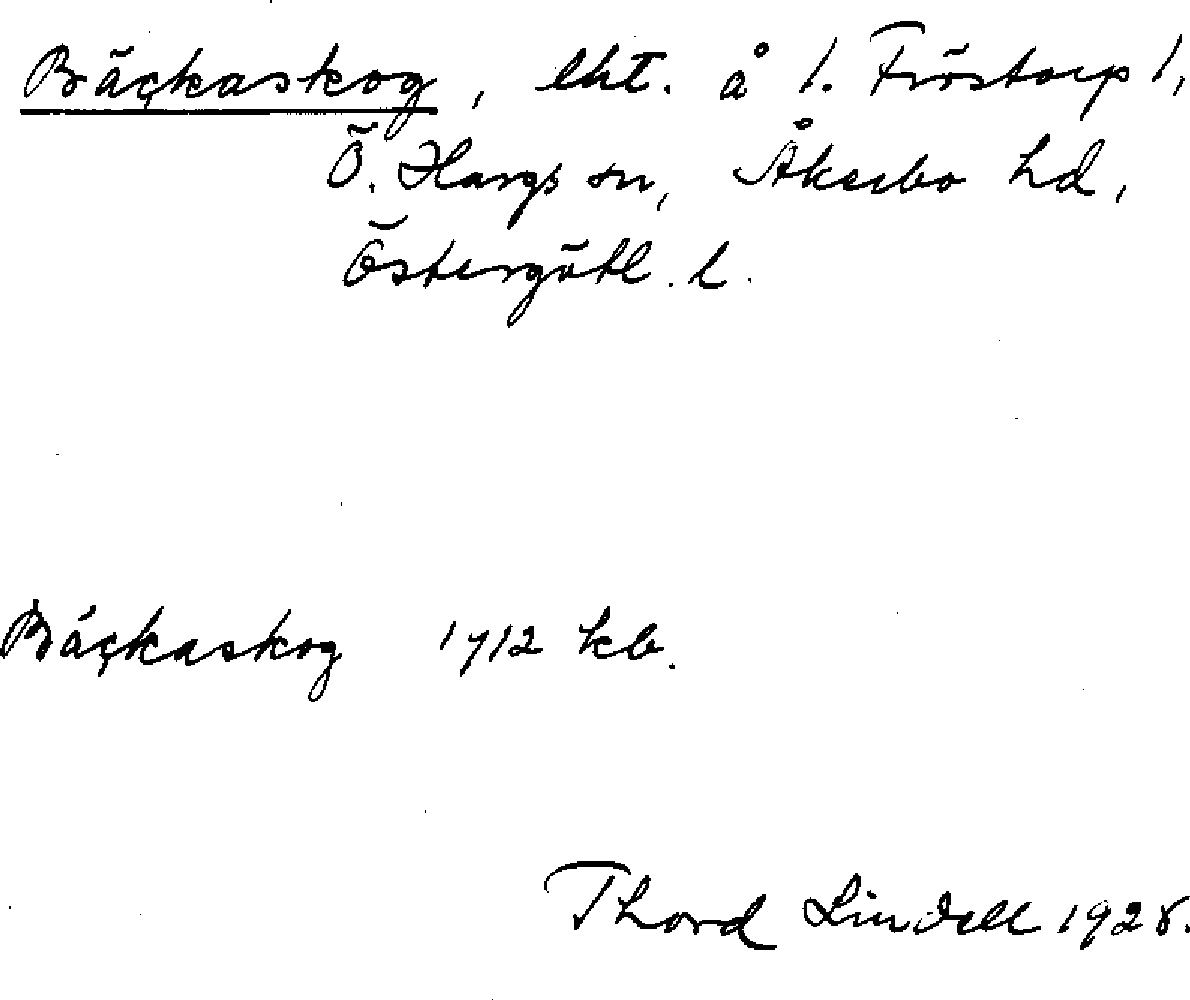 Bäckaskog, lht. å 1. Fröstorp 1,
Ö. Hargs sn, Åkerbo hd,
Östergötl. l.
Bäckaskog 1712 kb.
Thord Lindell 1928.